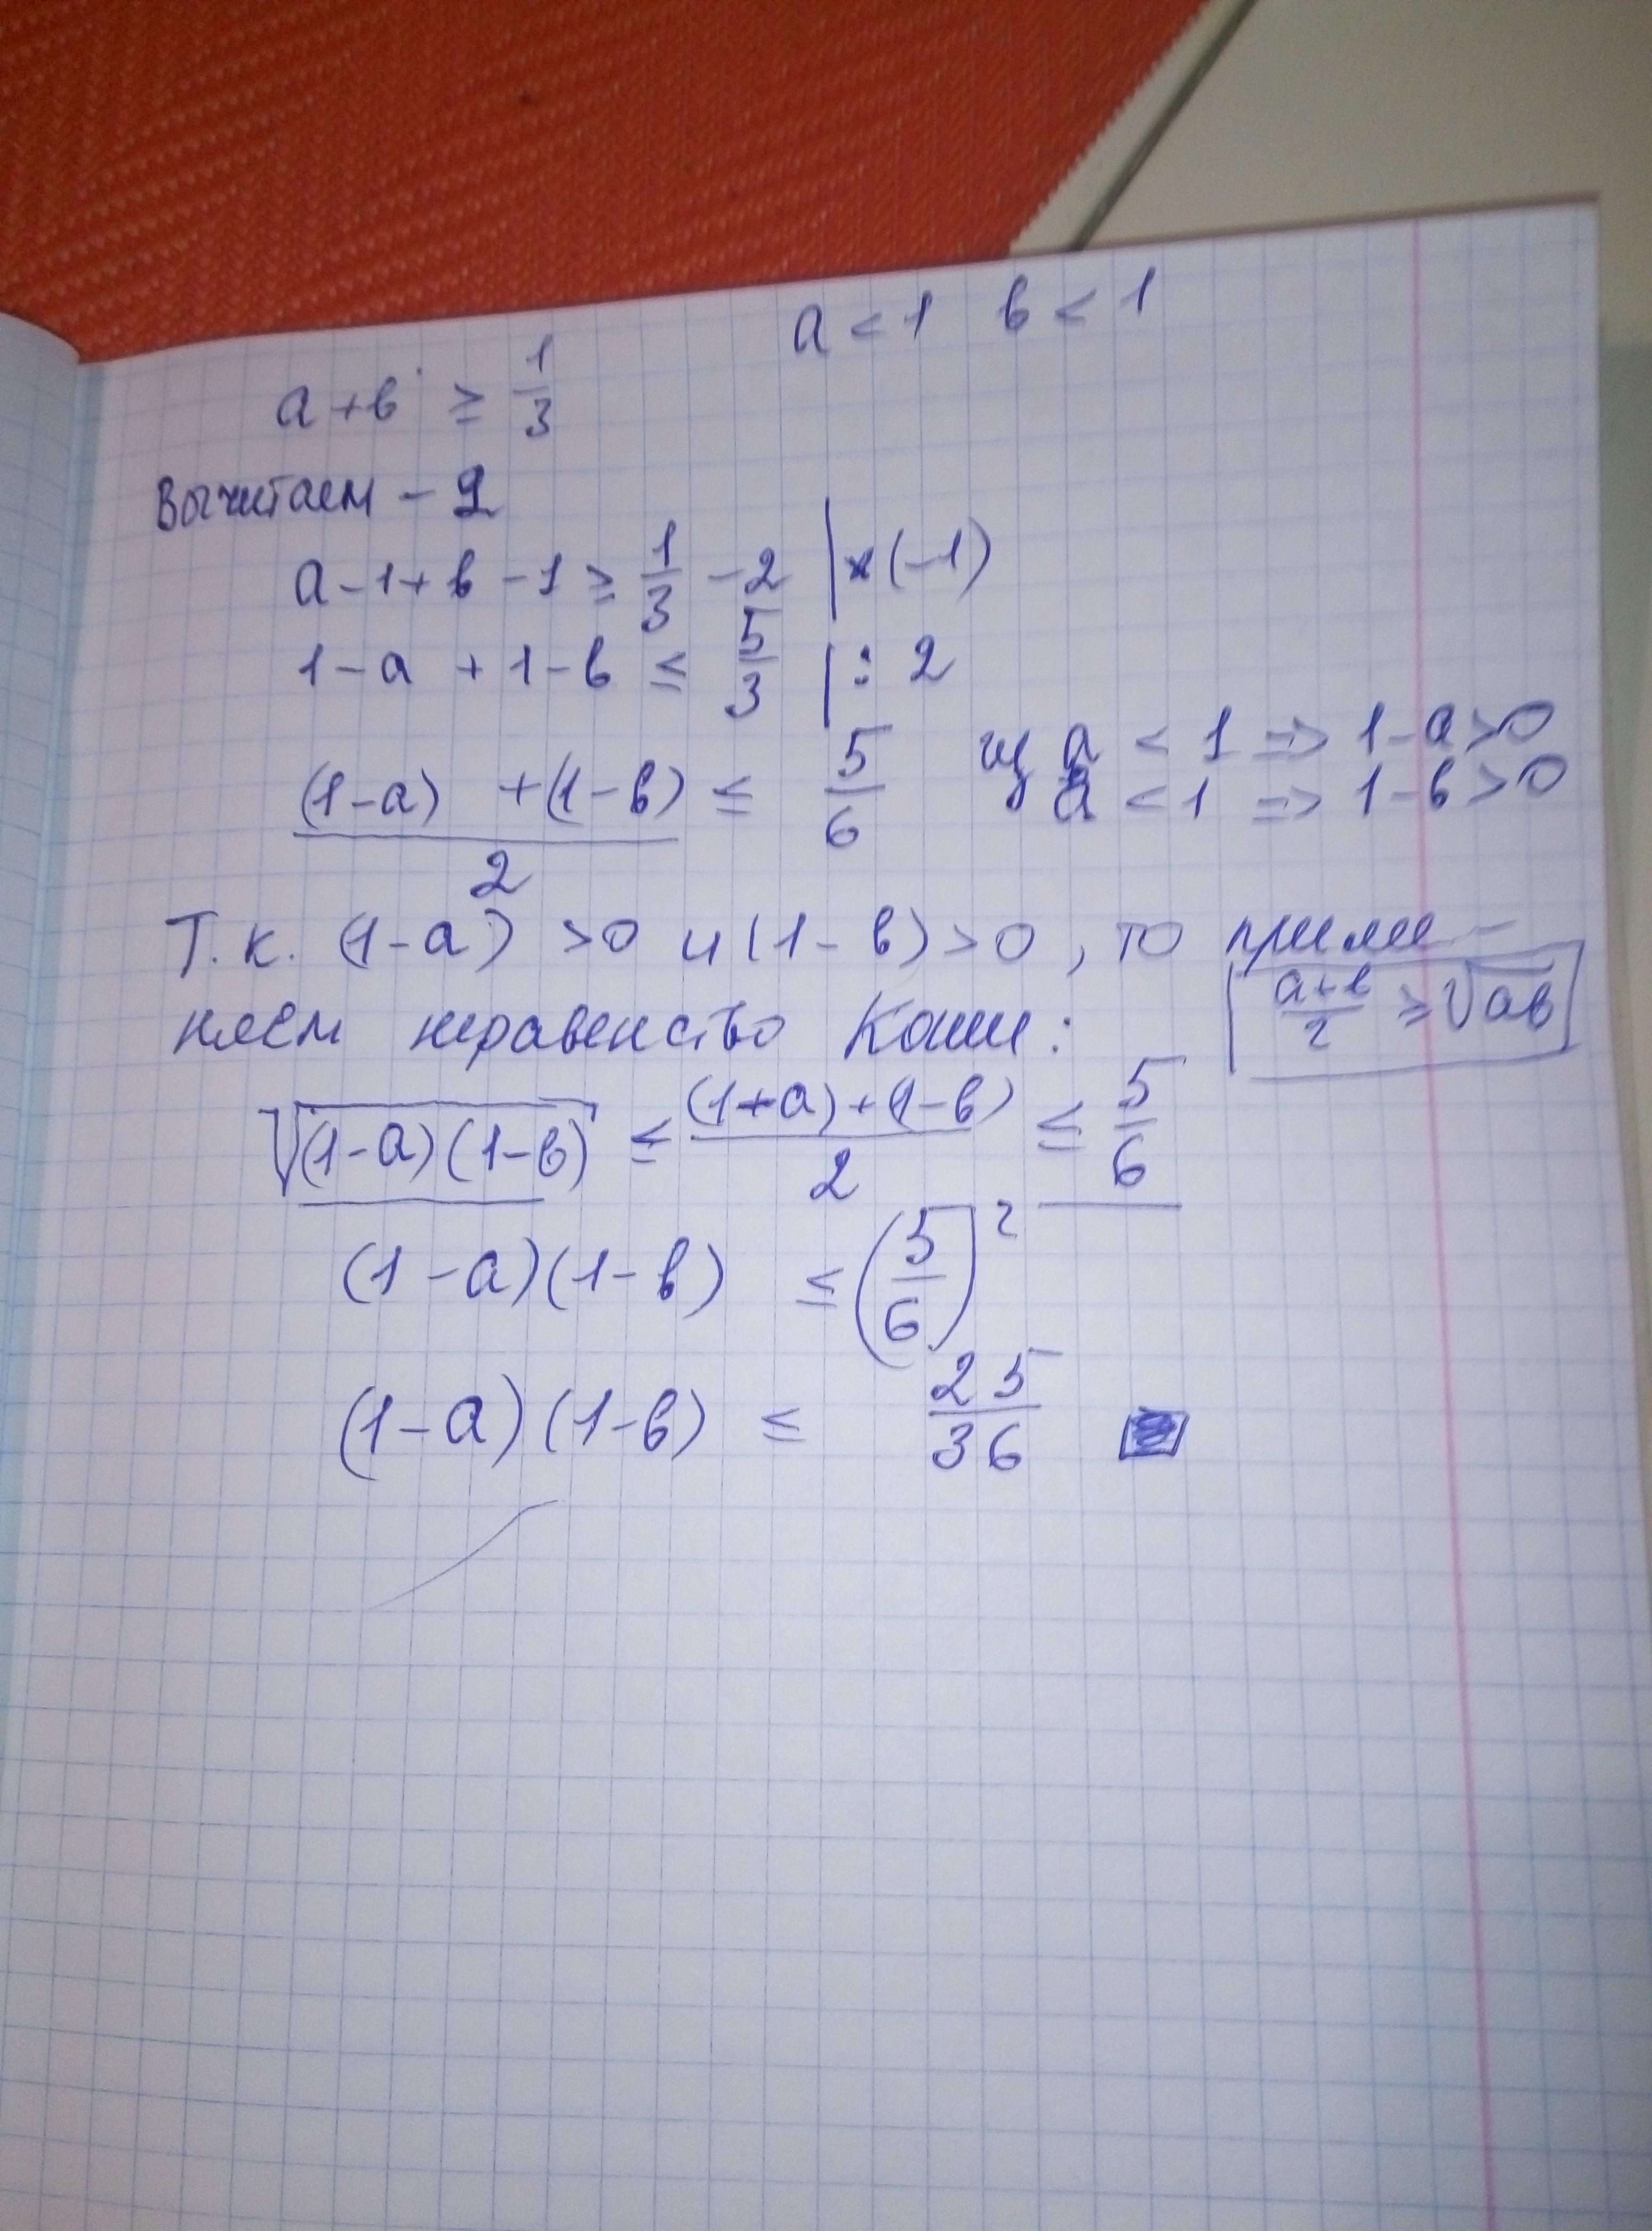 a < 1 в < 1
a + в ≥ 1/3
Вычитаем - 2
a - 1 + в - 1 ≥ 1/3 - 2 | × (-1)
1 - a + 1 - в ≤ 5/3 | : 2
((1 - a) + (1 - в))/2 ≤ 5/6 из a < 1 ⇒ 1 - a > 0
a < 1 ⇒ 1 - в > 0
Т.к. (1 - a) > 0 и (1 - в) > 0, то приме-
няем неравенство Коши: (a + в)/2 ≥ √ав
√((1 - a)(1 - в)) ≤ ((1 - a) + (1 - в))/2 ≤ 5/6
(1 - a)(1 - в) ≤ (5/6)²
(1 - a)(1 - в) ≤ 25/36